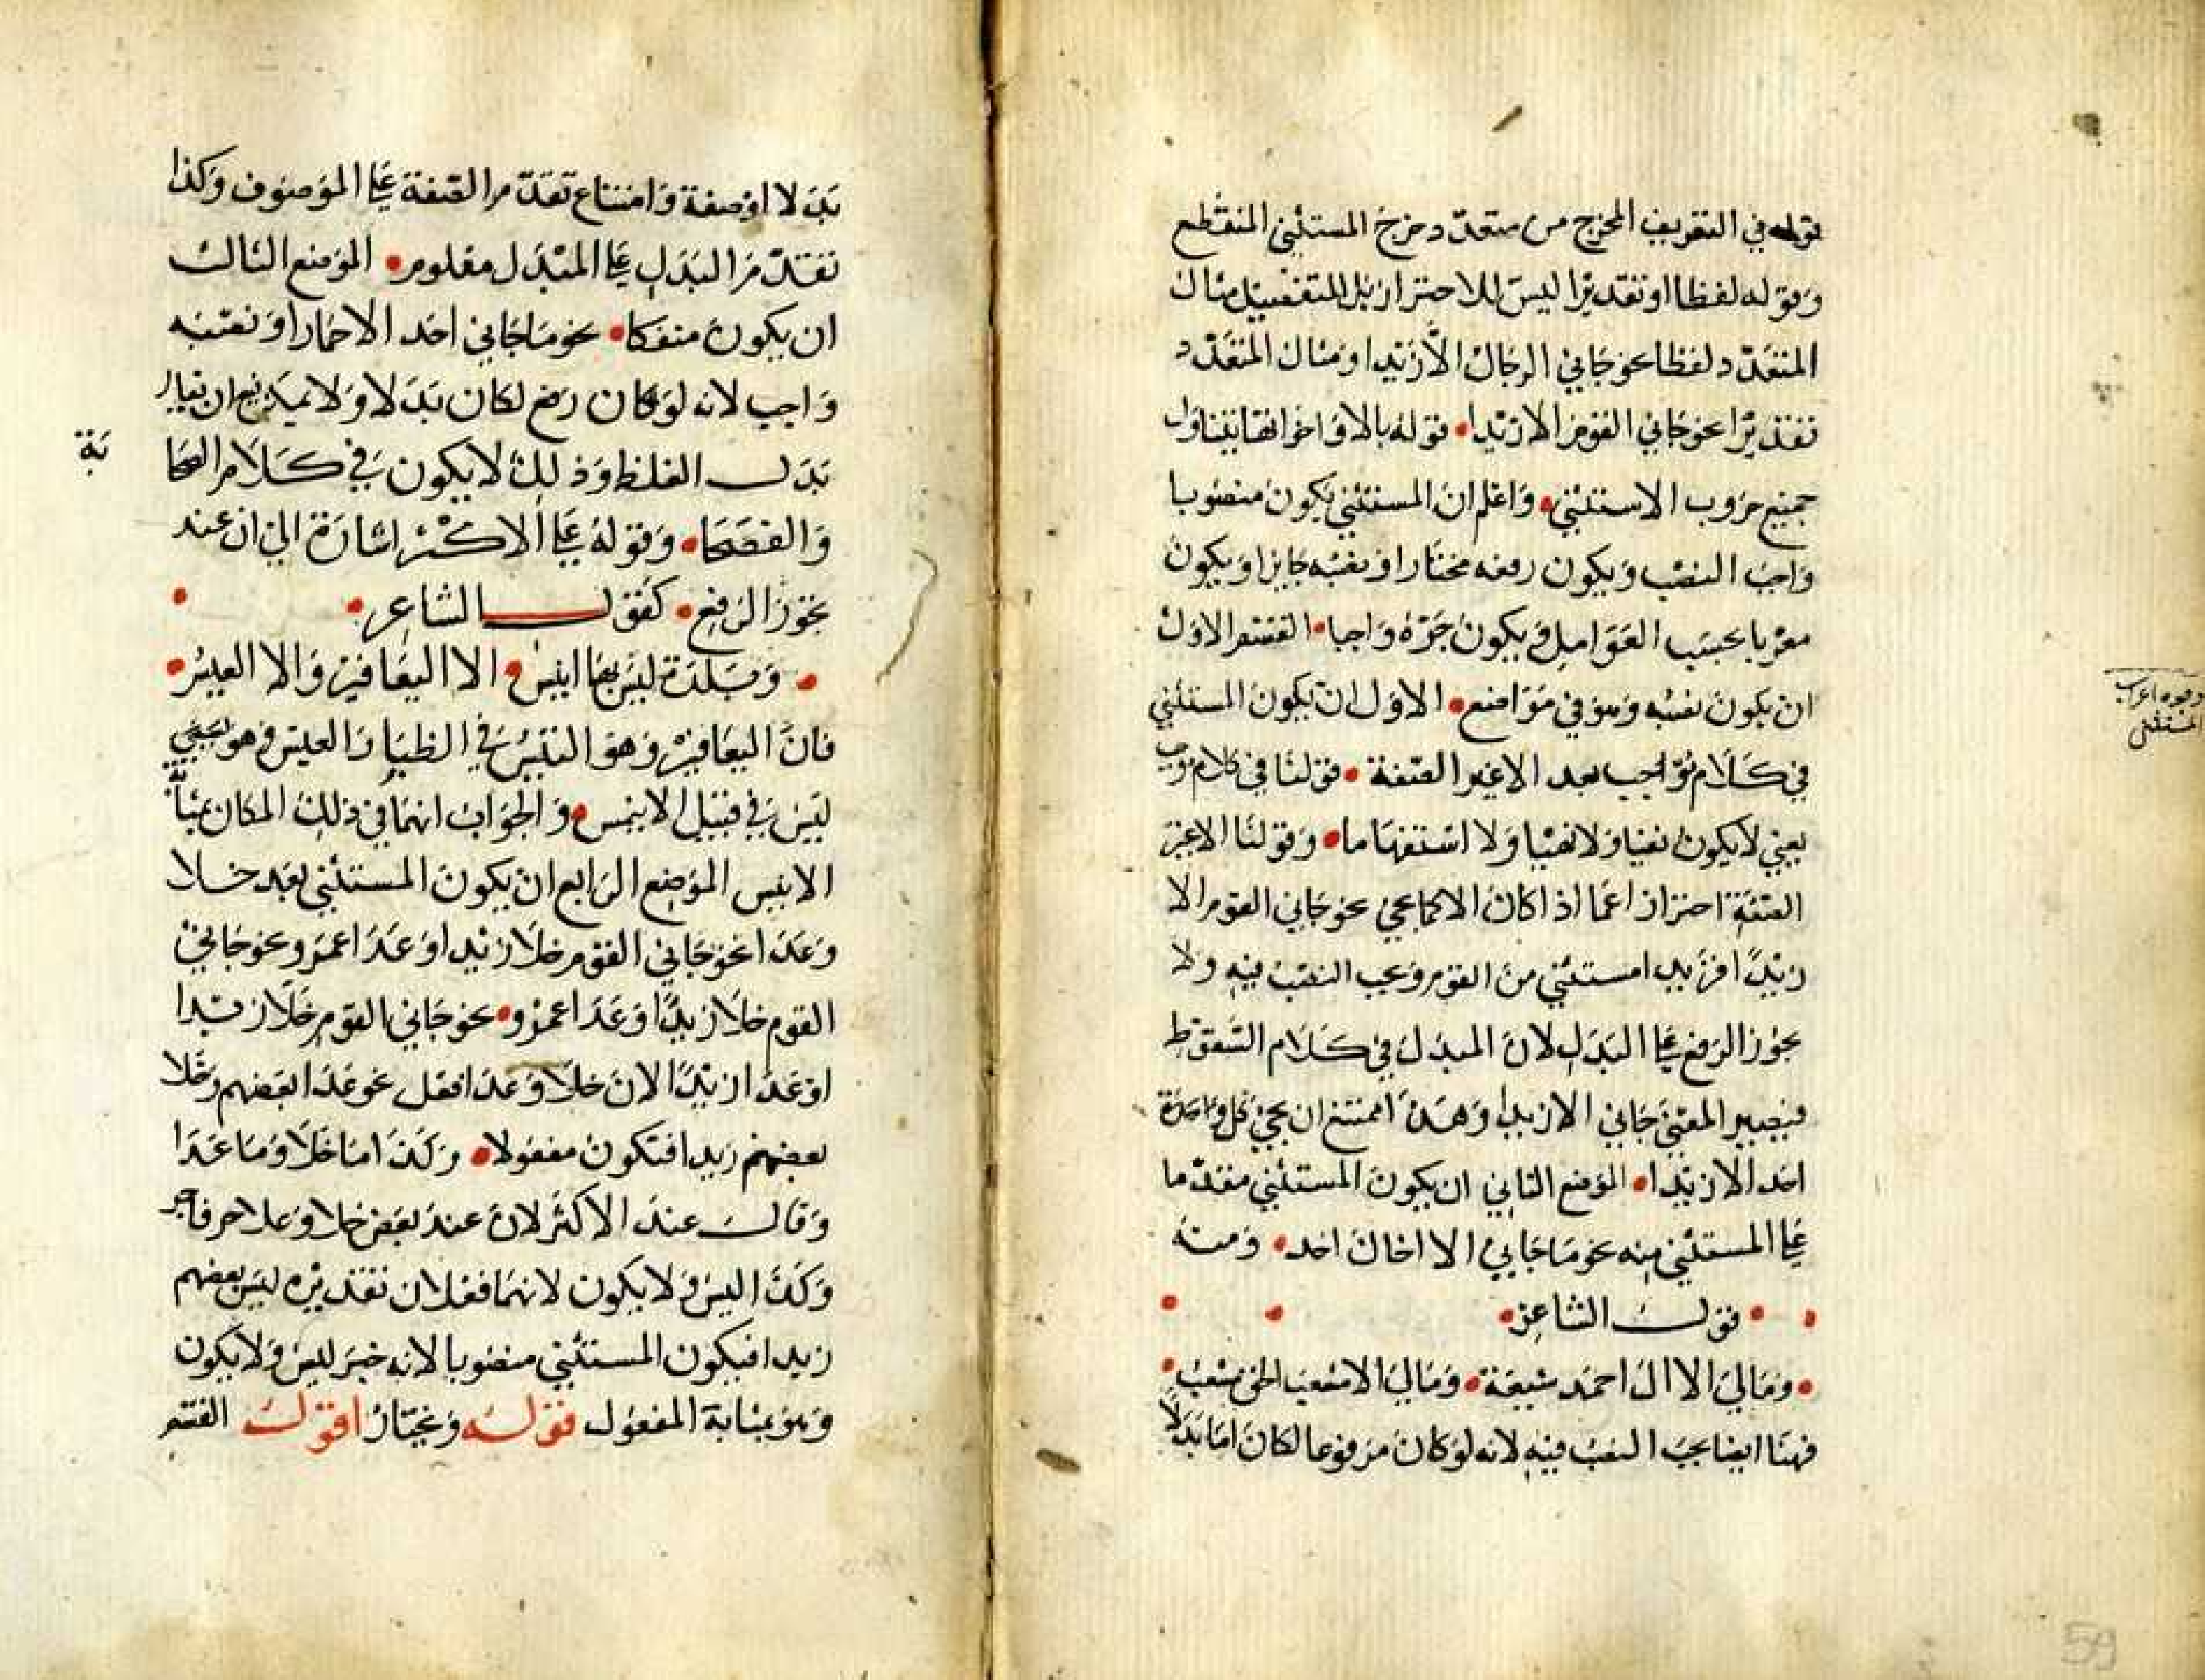 قوله في التعريف المخرج من متعدد خرج المستثنى المنقطع
وقوله لفظا او تقديرا ليس للاحتراز بل للتفصيل مثال
المتعدد لفظا نحو جاني الرجال الا زيدا ومثال المتعدد
تقديرا نحو جاني القوم الا زيدا قوله بالا واخواتها يتناول
جميع حروب الاستثنى واعلم ان المستثنى يكون منصوبا
واجب النصب ويكون رفعه مختارا ونصبه جايزا ويكون
معربا بحسب العوامل ويكون جره واجبا القسم الاول
ان يكون نصبه وهو في مواضع الاول ان يكون المستثنى
وجوه اعراب
المستثنى
في كلام موجب بعد الا غير الصفة فقولنا في كلام موجب
يعني لا يكون نفيا ولا نهيا ولا استفهاما وقولنا الا غير
الصفة احترازا عما اذا كان الا كما يجي نحو جاني القوم الا
زيدا فزيدا مستثنى من القوم ويجب النصب فيه ولا
يجوز الرفع على البدل لان المبدل في كلام السقوط
فيصير المعنى جاني الا زيدا وهذا ممتنع ان يجي كل واحد
احد الا زيدا الموضع الثاني ان يكون المستثنى مقدما
على المستثنى منه نحو ما جاني الا اخاك احد ومنه
قول الشاعر
ومالي الا ال احمد شيعة ومالي الا شعب الحق مشعب
فهنا ايضا يجب النصب فيه لانه لو كان مرفوعا لكان اما بدلا
بدلا او صفة وامتناع تقدم الصفة على الموصوف وكذا
تقدم البدل على المبدل معلوم الموضع الثالث
ان يكون منفكا نحو ما جاني احد الا حمارا ونصبه
واجب لانه لو كان رفع لكان بدلا ولا يمكن ان يقال
بدل الغلط وذلك لا يكون في كلام الصحا
بة
والفصحا وقوله على الاكثر اشارة الى ان عند
يجوز الرفع كقول الشاعر
وبلدة ليس بها انيس الا اليعافير والا العيس
فان اليعافير وهو التيس في الظبا والعيس وهو
ليس في قبيل الانيس والجواب انهما في ذلك المكان بمثابة
الانيس الموضع الرابع ان يكون المستثنى بعد خلا
وعدا نحو جاني القوم خلا زيدا وعدا عمرو ونحو جاني
القوم خلا زيدا وعدا عمرو نحو جاني القوم خلا زيدا
او عدا زيدا لان خلا وعدا فعل نحو عدا بعضهم وخلا
بعضهم زيدا فتكون مفعولا وكذا ما خلا وما عدا
وقال عند الاكثر لان عند بعض خلا وعدا حرفا جر
وكذا ليس ولا يكون لانهما فعلان تقديره ليس بعضهم
زيدا فيكون المستثنى منصوبا لانه خبر ليس ولا يكون
وهو بمثابة المفعول قوله ويختار اقول القسم
59